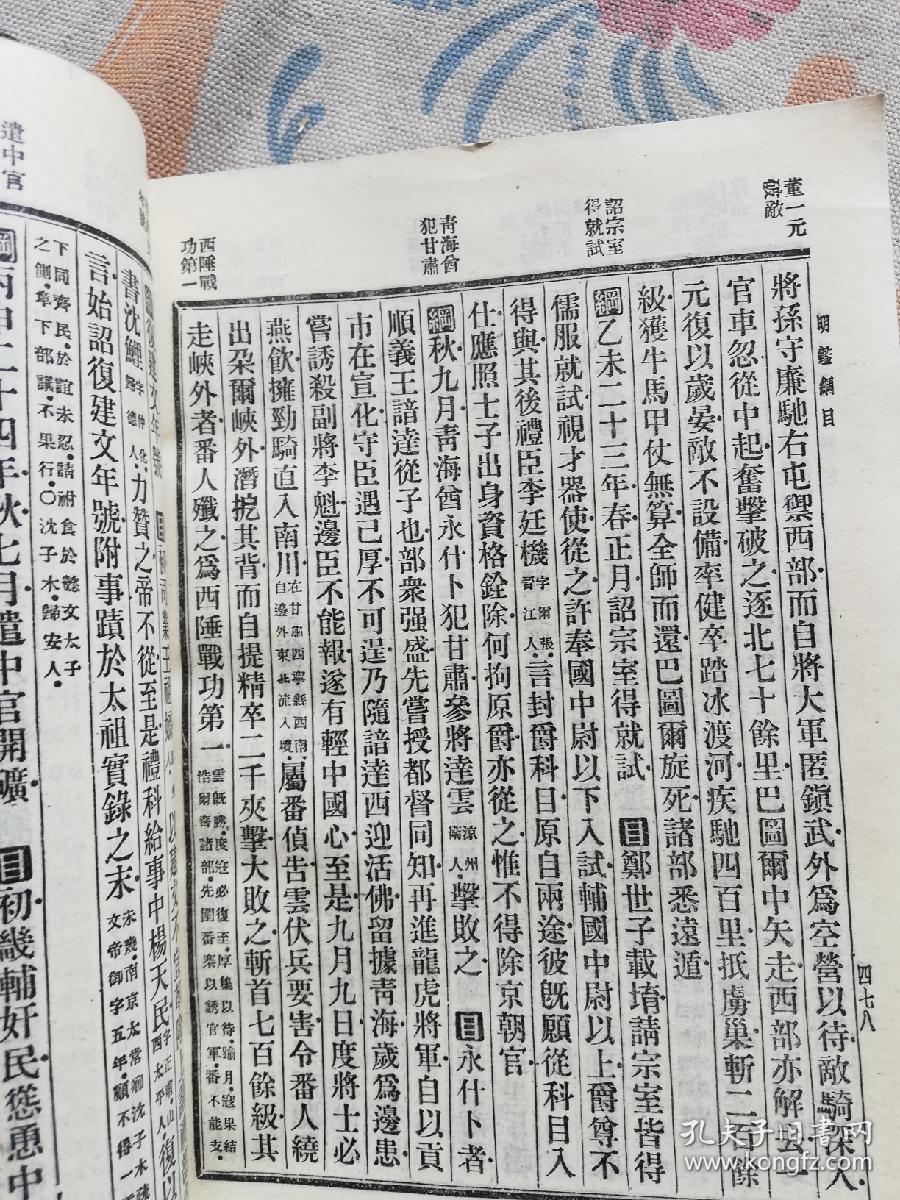 明鑑綱目
四七八
董一元
詔宗室
得就試
青海酋
犯甘肅
西陲戰
功第一
將孫守廉馳右屯禦西部而自將大軍匿鎮武外爲空營以待敵騎深入
官車忽從中起奮擊破之逐北七十餘里巴圖爾中矢走西部亦解去一
元復以歲晏敵不設備率健卒踏冰渡河疾馳四百里抵虜巢斬二百餘
級獲牛馬甲仗無算全師而還巴圖爾旋死諸部悉遠遁
綱乙未二十三年春正月詔宗室得就試目鄭世子載堉請宗室皆得
儒服就試視才器使從之許奉國中尉以下入試輔國中尉以上爵尊不
得與其後禮臣李廷機字爾張晉江人言封爵科目原自兩途彼旣願從科目入
仕應照士子出身資格銓除何拘原爵亦從之惟不得除京朝官
綱秋九月青海酋永什卜犯甘肅參將達雲涼州衞人擊敗之目永什卜者
順義王諳達從子也部衆强盛先嘗授都督同知再進龍虎將軍自以貢
市在宣化守臣遇己厚不可逞乃隨諳達西迎活佛留據青海歲爲邊患
嘗誘殺副將李魁邊臣不能報遂有輕中國心至是九月九日度將士必
燕飲擁勁騎直入南川在甘肅西寧縣西南自邊外東北流入境屬番偵告雲伏兵要害令番人繞
出朶爾峽外潛扼其背而自提精卒二千夾擊大敗之斬首七百餘級其
走峽外者番人殲之爲西陲戰功第一雲旣勝度寇必復至厚集以待踰月寇果結浩爾齊諸部先圍番寨以誘官軍番不能支
遣中官
書沈鯉字仲化歸德人力贊之帝不從至是禮科給事中楊天民復以
言始詔復建文年號附事蹟於太祖實錄之末
下同齊民於誼未忍請祔食於懿文太子
之側章下部議不果行〇沈子木歸安人
綱丙申二十四年秋七月遣中官開礦目初畿輔奸民慫恿中
孔夫子旧书网
kongfz.com